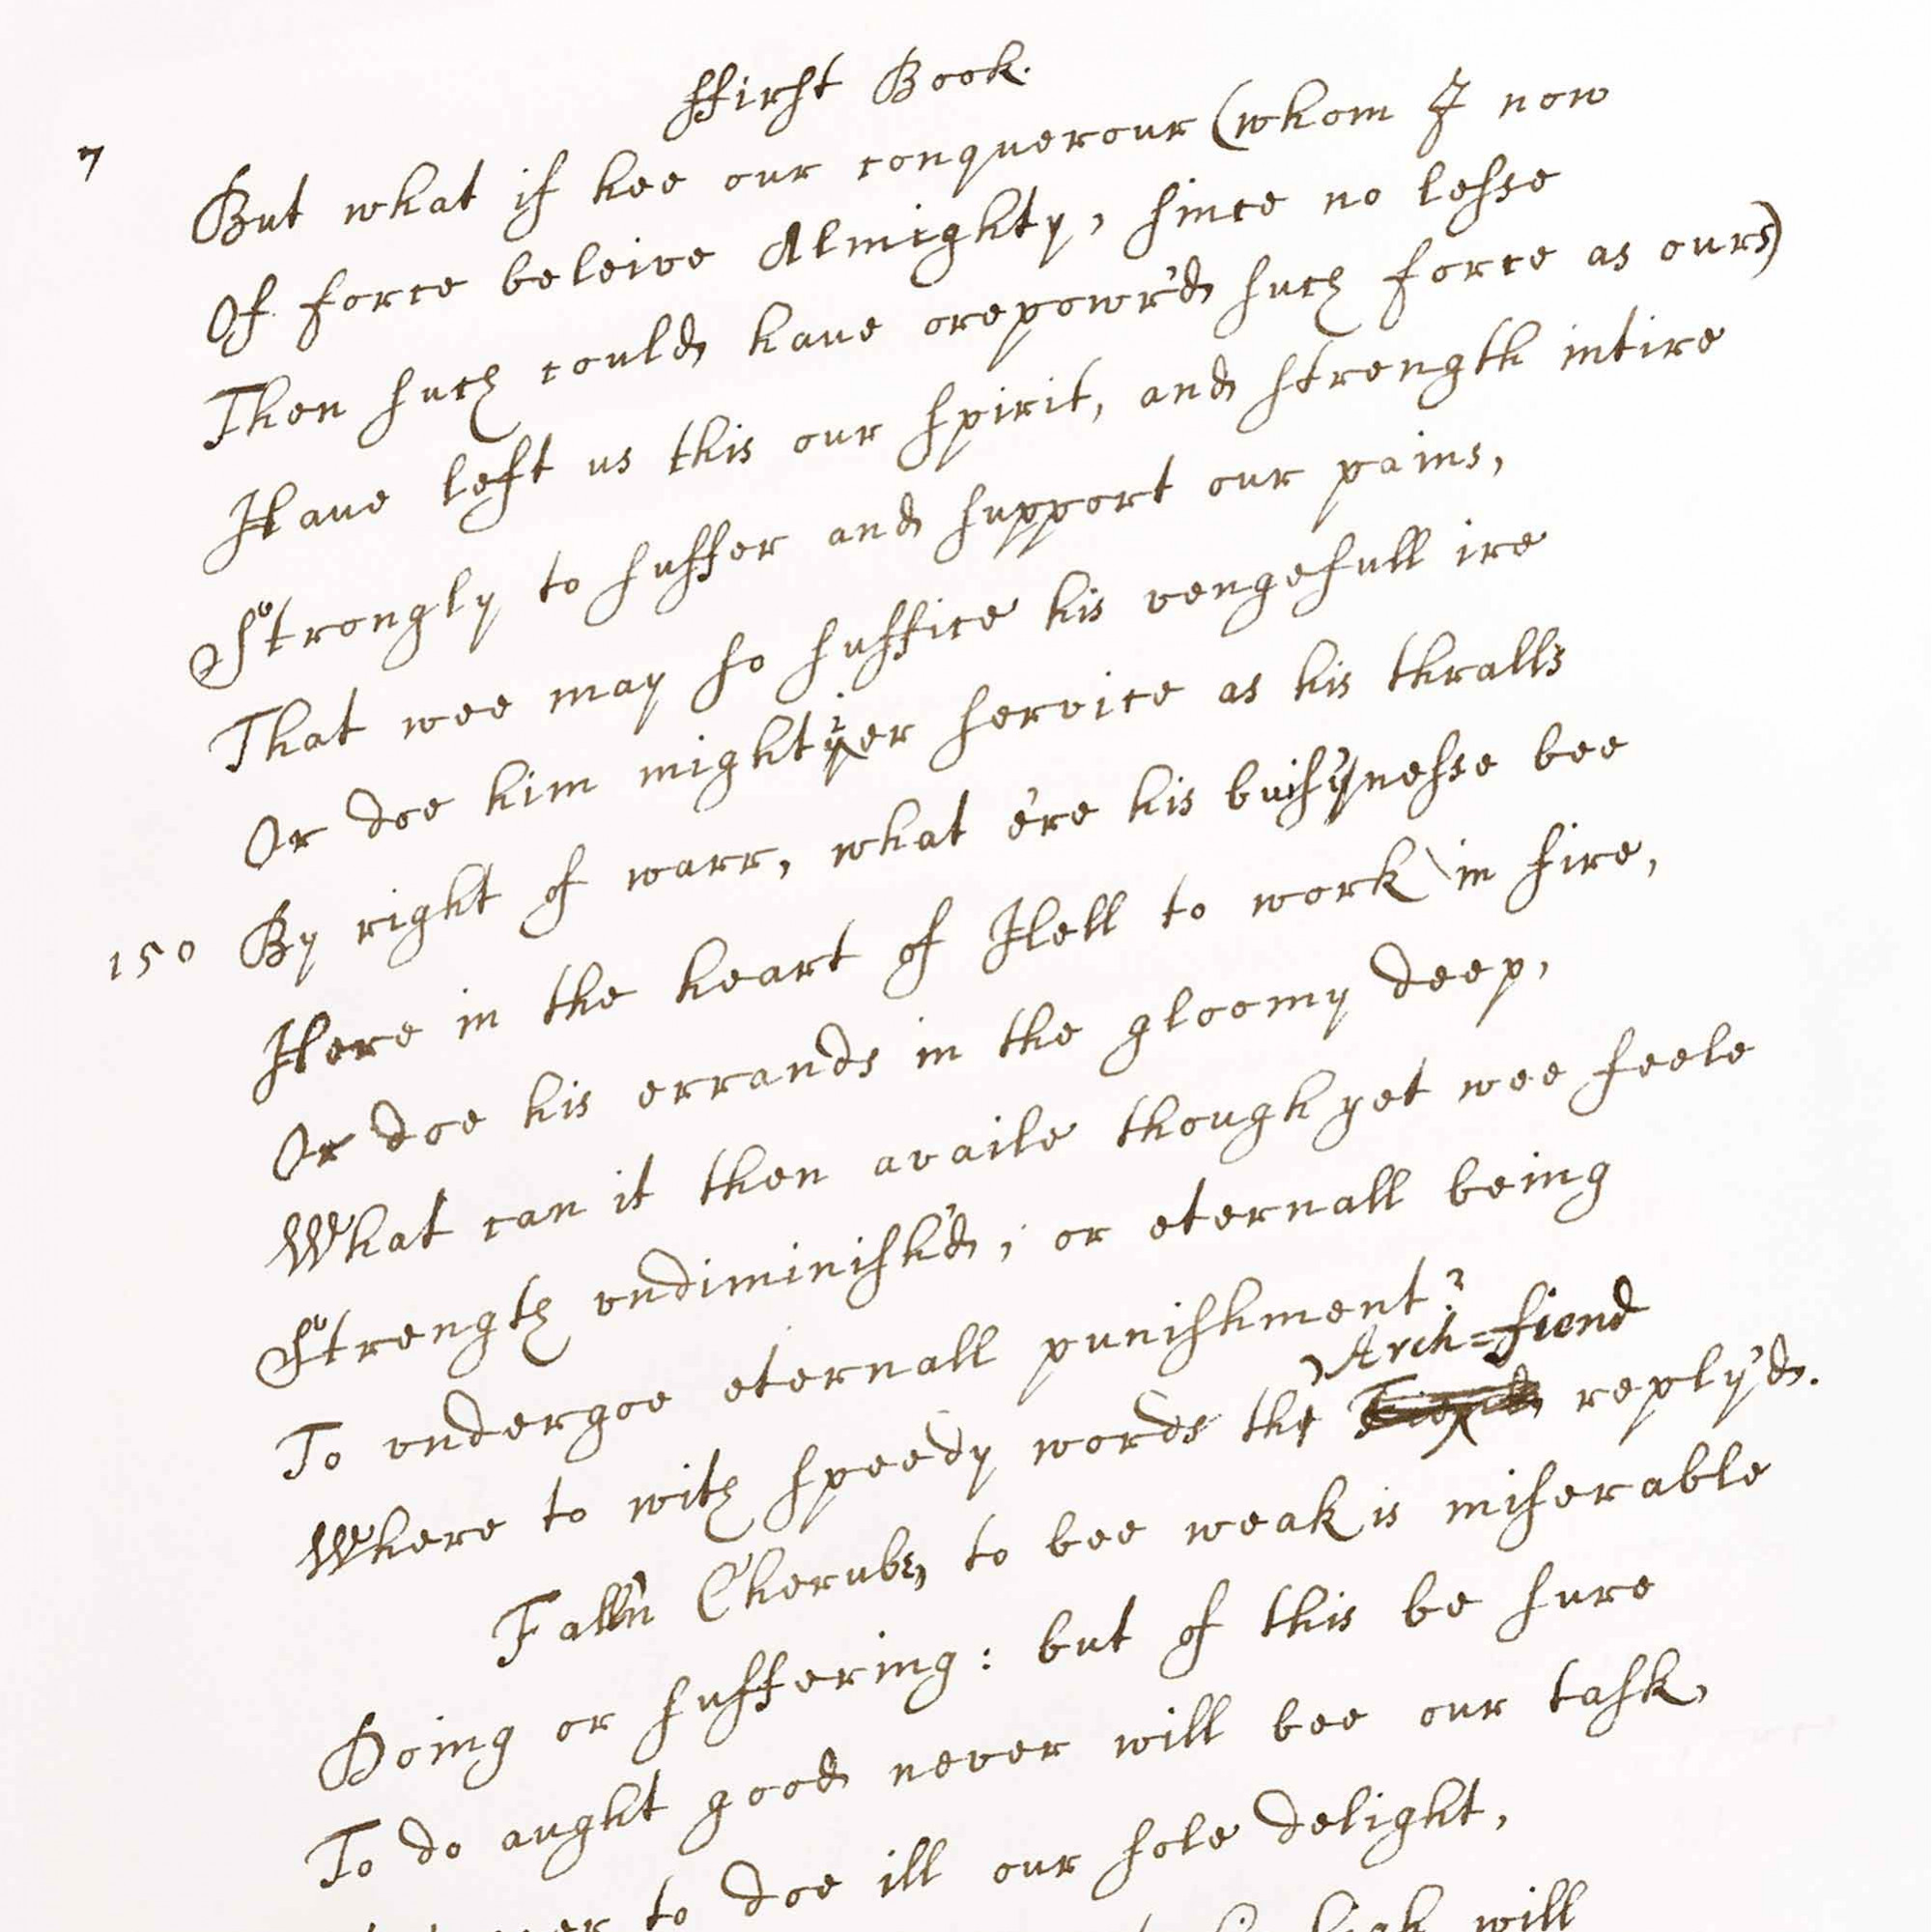 ffirst Book.
7
But what if hee our conquerour (whom I now
Of force beleive Almighty, since no lesse
Then such could have orepowr'd such force as ours)
Haue left us this our spirit, and strength intire
Strongly to suffer and support our pains,
That wee may so suffice his vengefull ire
Or doe him mightier service as his thralls
By right of warr, what e're his buisynesse bee
150
Here in the heart of Hell to work in fire,
Or doe his errands in the gloomy deep,
What can it then availe though yet wee feele
Strength vndiminish'd, or eternall being
To vndergoe eternall punishment?
Arch=fiend
Where to with speedy words the Fiend reply'd.
Fall'n Cherub, to bee weak is miserable
Doing or suffering: but of this be sure
To do aught good never will bee our task,
to doe ill our sole delight,
will